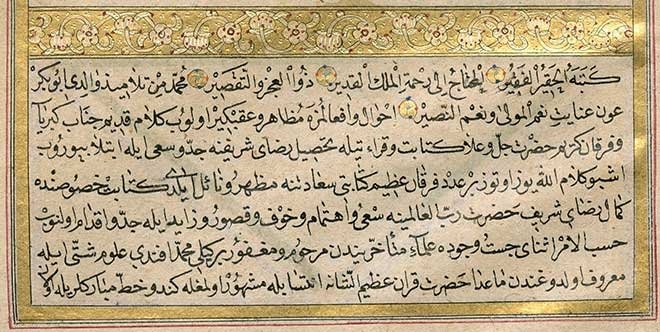 كتبه الحقير الفقير المحتاج الى رحمة الملك القدير ذو العجز والتقصير محمد من تلاميذ والدي ابو بكر
عون عنايت نعم المولى ونعم النصير احوال واقعالمزه مظاهر وعقبكير اولوب كلام قديم جناب كبريا
و فرقان كريم حضرت جل وعلا كتابت وقراءتيله تحصيل رضاى شريفنه جد وسعى ايله ابتلا بيوروب
اشبو كلام الله يوز اوتوزبر عدد فرقان عظيم كتابتى سعادتنه مظهر ونائل ايلدى كتابت خصوصنده
كمال رضاى شريف حضرت رب العالمينه سعى واهتمام وخوف وقصور وزايد ايله جد واقدام اولنوب
حسب الامر اثناى جست وجوده علماء متأخريندن مرحوم ومغفور بركلى محمد افندي علوم شتى ايله
معروف اولدوغندن ماعدا حضرت قران عظيم الشانه انتسابله مشهور اولمغله كندو خط مباركلريله